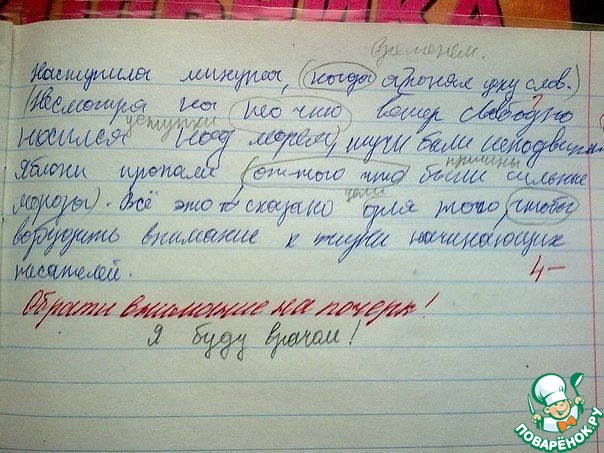 временем.
Наступила минута, (когда я понял цену слов.)
(Несмотря на то что ветер свободно
уступки
носился над морем, тучи были неподвижны
причины
Яблоки пропали (оттого что были сильные
цели
морозы). Всё это сказано для того, чтобы
возбудить внимание к жизни начинающих
писателей. 4-
Обрати внимание на почерк!
Я буду врачом!
ПОВАРЁНОК.РУ